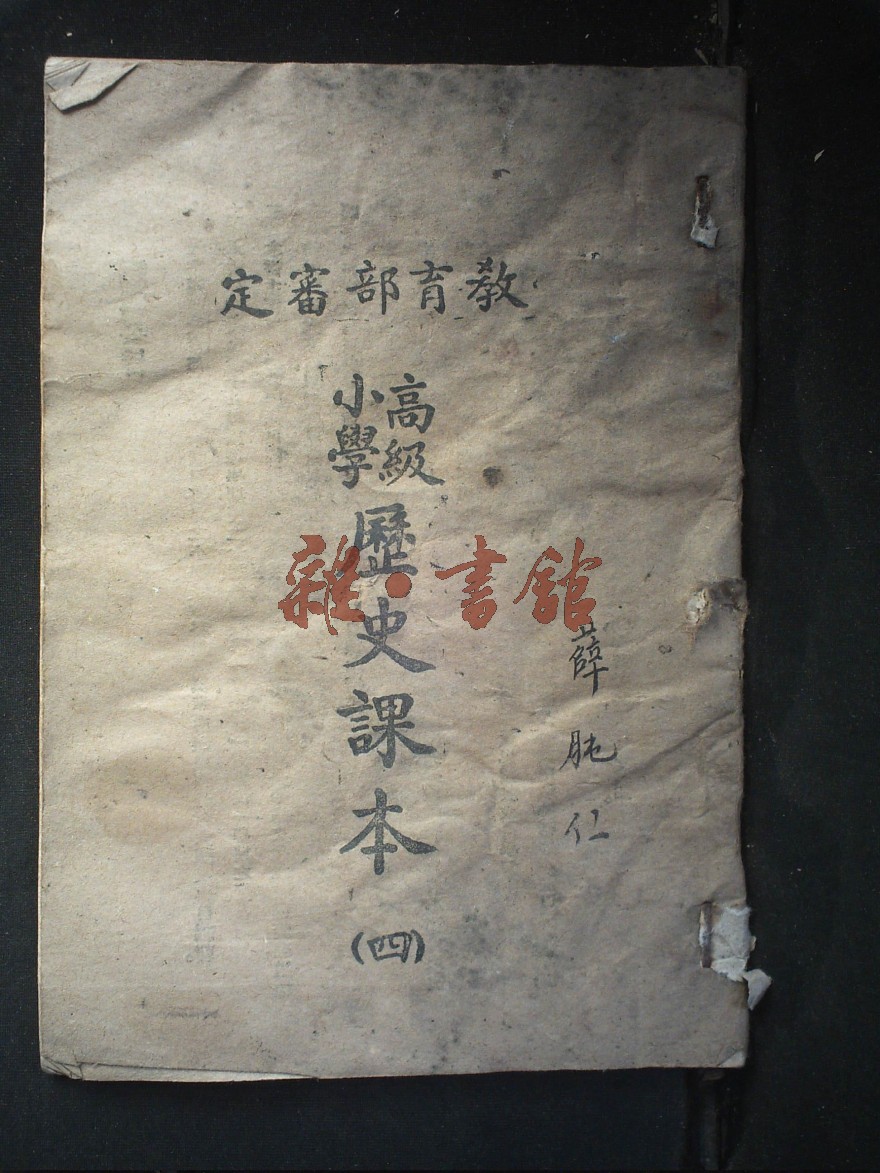 教育部審定
高級
小學
歷史課本
(四)
薛肫仁
雜·書館